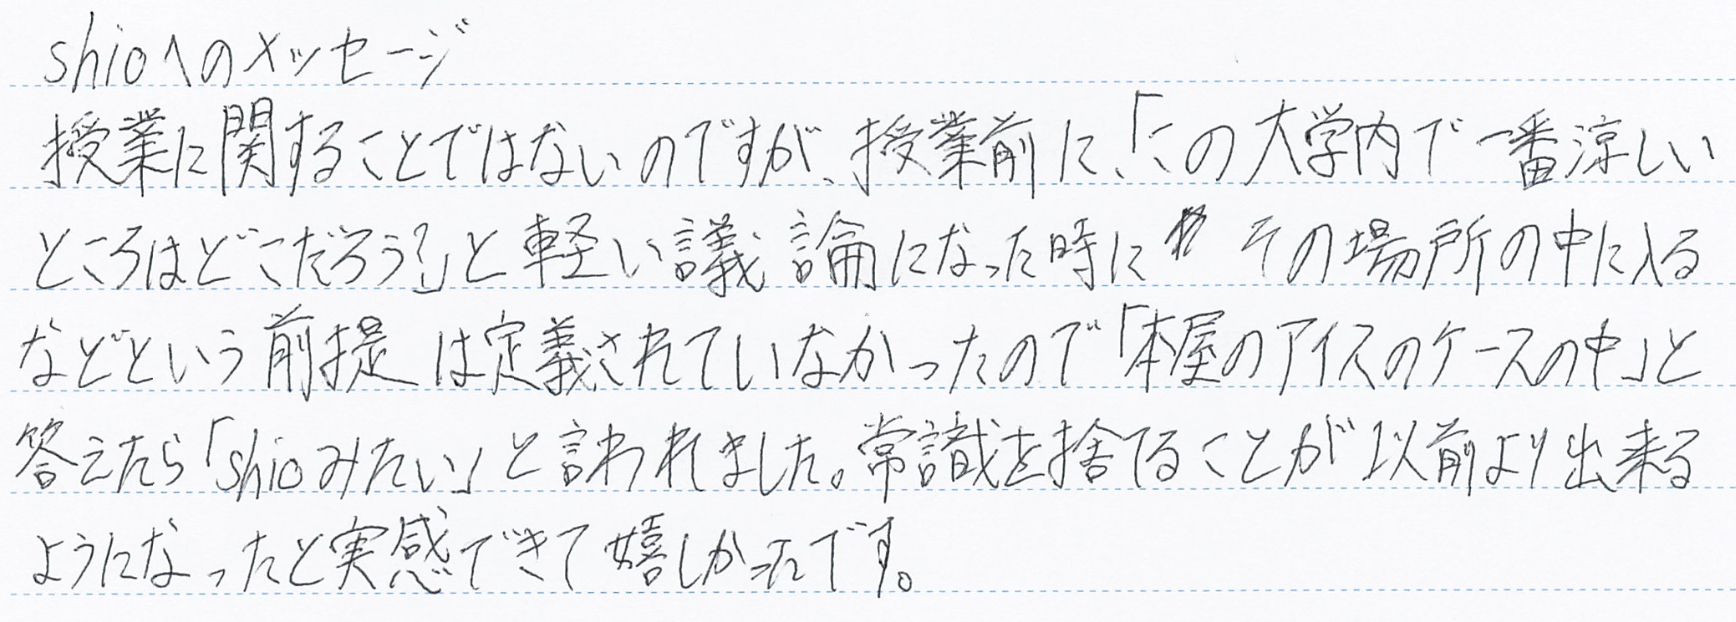 shioへのメッセージ
授業に関することではないのですが、授業前に、「この大学内で一番涼しい
ところはどこだろう?」と軽い議論になった時に その場所の中に入る
などという前提は定義されていなかったので「本屋のアイスのケースの中」と
答えたら「shioみたい」と言われました。常識を捨てることが以前より出来る
ようになったと実感できて嬉しかったです。